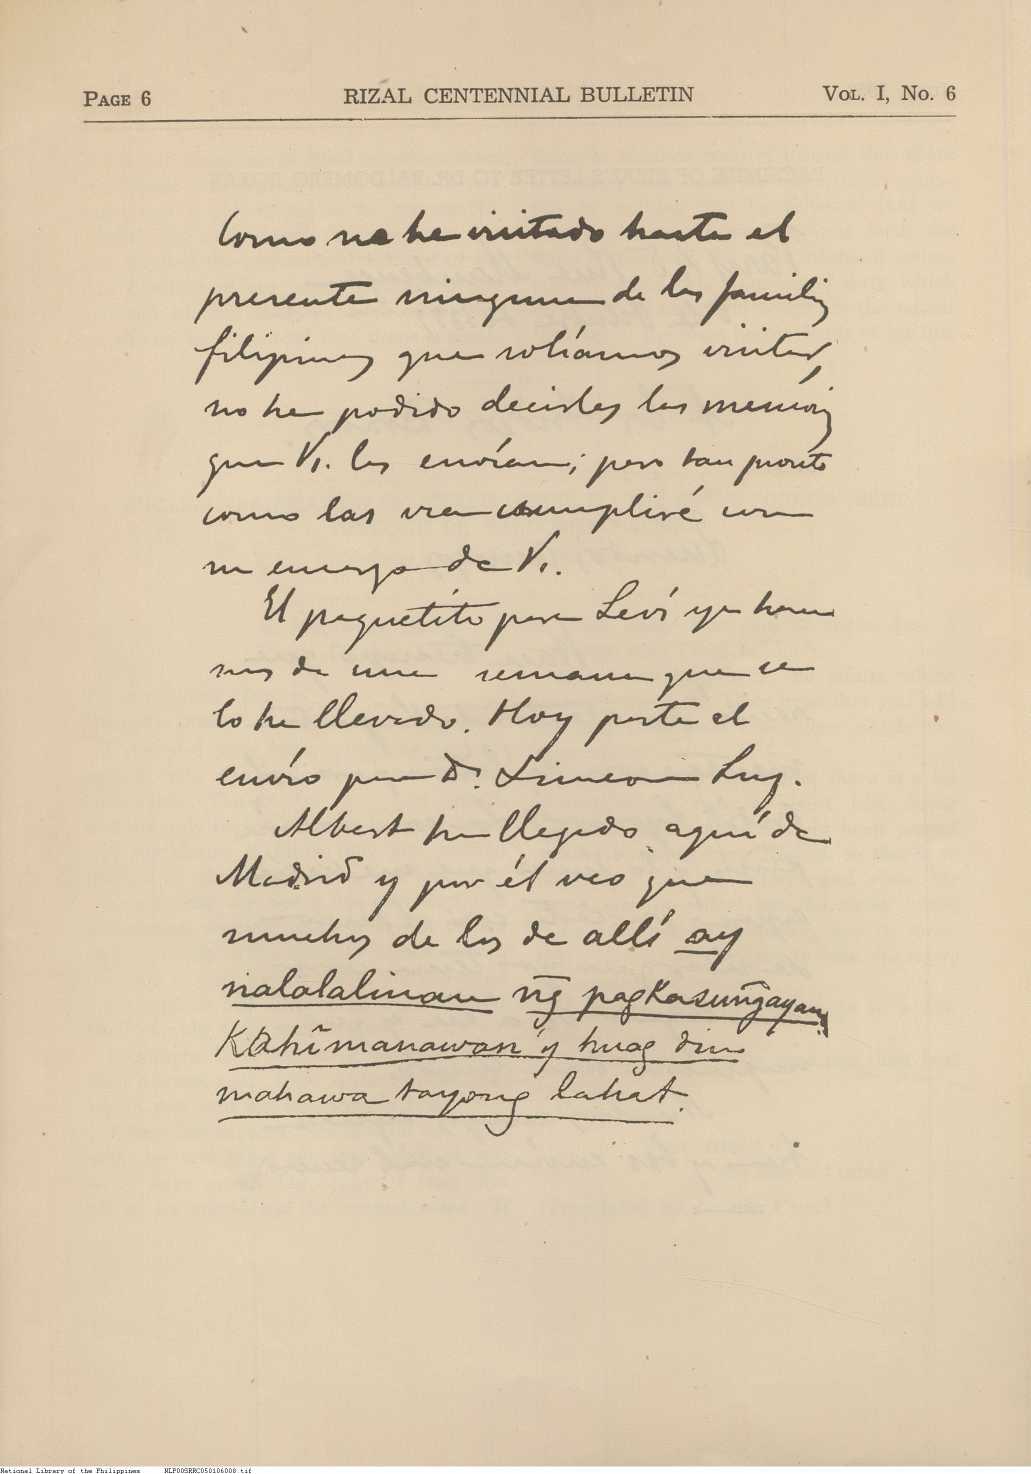 PAGE 6 RIZAL CENTENNIAL BULLETIN VOL. I, NO. 6
Como no he visitado hasta el
presente ninguna de las familias
filipinas que solíamos visitar,
no he podido decirles las memorias
que V. les envían; pero tan pronto
como las vea cumpliré con
su encargo de V.
El paquetito para Leví ya hace
mas de una semana que se
lo he llevado. Hoy parte el
envío para Dn. Simeona Luz.
Albert ha llegado aquí de
Madrid y por él veo que
muchos de los de allí ay
nalalalinan n͠g pagkasun͠gayan.
Kahimanawari'y huag din
mahawa tayong lahat.
National Library of the Philippines NLP00SRRC050106008 tif